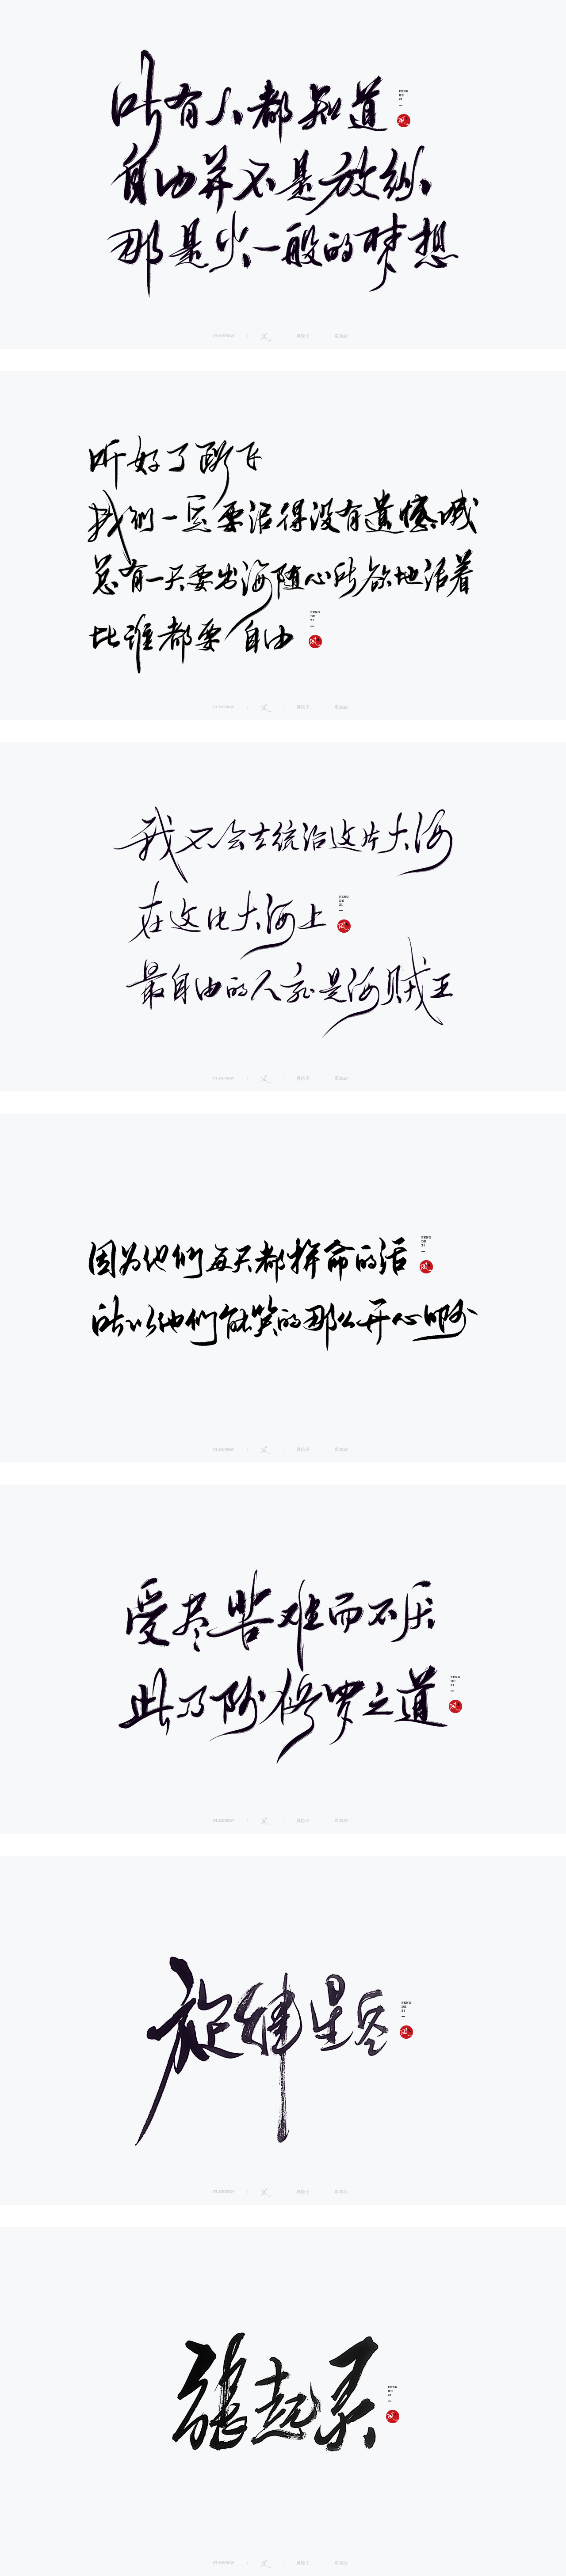 所有人都知道
FENG
自由并不是放纵,
那是火一般的梦想
听好了路飞
我们一定要活得没有遗憾
总有一天要出海随心所欲地活着
比谁都要自由
FENG
我不会去统治这片大海
在这片大海上
FENG
最自由的人就是海贼王
因为他们每天都拼命的活
FENG
所以他们能笑的那么开心啊
受尽苦难而不厌
此乃阿修罗之道
FENG
旋律星空
FENG
張起灵
FENG